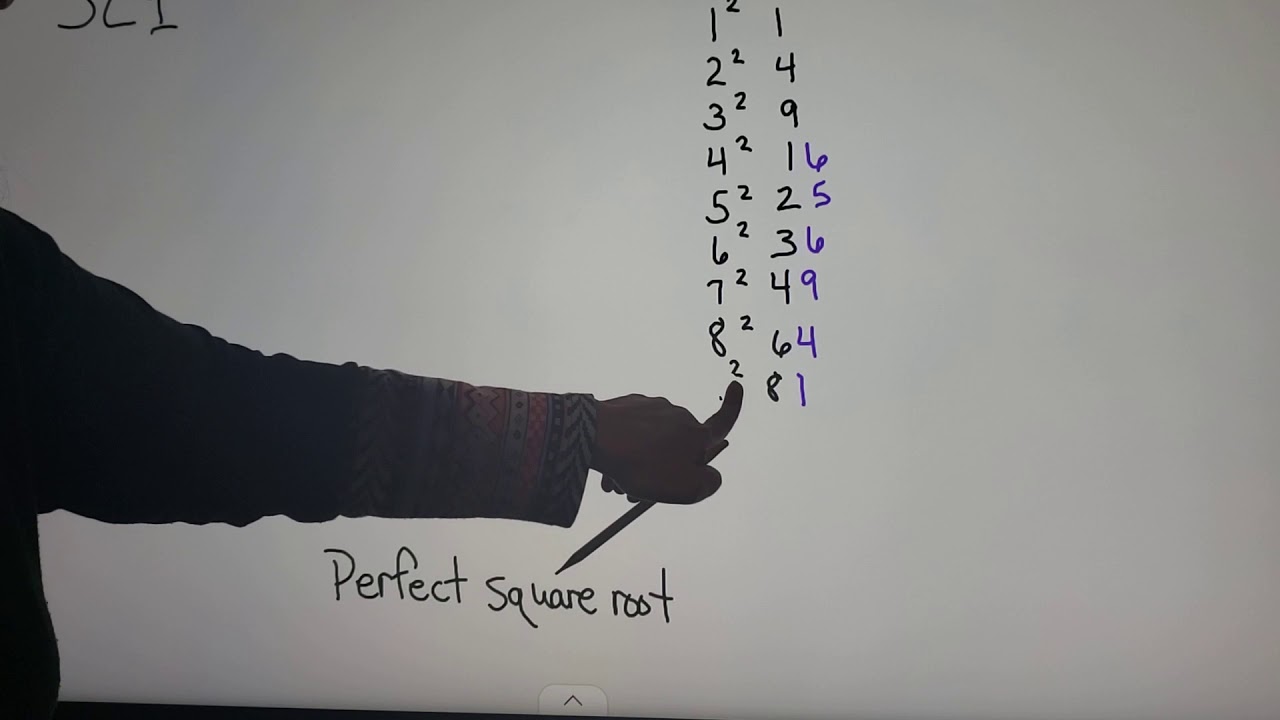 1² 1
2² 4
3² 9
4² 16
5² 25
6² 36
7² 49
8² 64
² 81
Perfect square root